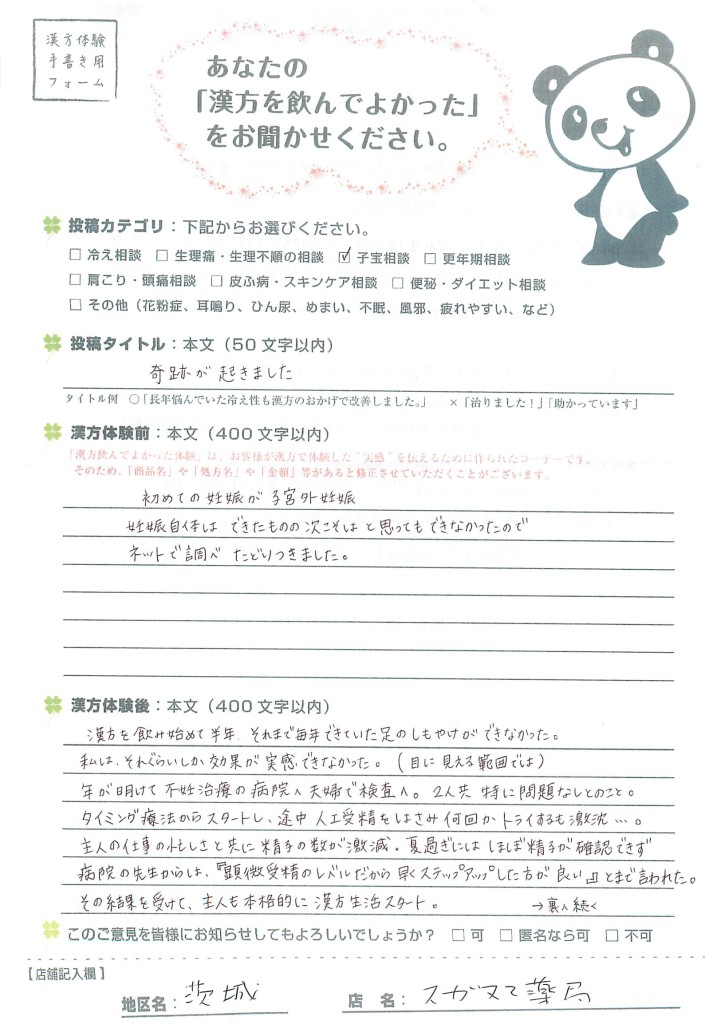 漢方体験
手書き用
フォーム
あなたの
「漢方を飲んでよかった」
をお聞かせください。
投稿カテゴリ：下記からお選びください。
□ 冷え相談 □ 生理痛・生理不順の相談 ☑ 子宝相談 □ 更年期相談
□ 肩こり・頭痛相談 □ 皮ふ病・スキンケア相談 □ 便秘・ダイエット相談
□ その他（花粉症、耳鳴り、ひん尿、めまい、不眠、風邪、疲れやすい、など）
投稿タイトル：本文（50文字以内）
奇跡が起きました
タイトル例 ○「長年悩んでいた冷え性も漢方のおかげで改善しました。」 ×「治りました！」「助かっています」
漢方体験前：本文（400文字以内）
「漢方飲んでよかった体験」は、お客様が漢方で体験した“実感”を伝えるために作られたコーナーです。
そのため、「商品名」や「処方名」や「金額」等があると修正させていただくことがございます。
初めての妊娠が子宮外妊娠
妊娠自体はできたものの次こそはと思ってもできなかったので
ネットで調べたどりつきました。
漢方体験後：本文（400文字以内）
漢方を飲み始めて半年、それまで毎年できていた足のしもやけができなかった。
私は、それぐらいしか効果が実感できなかった。（目に見える範囲では）
年が明けて不妊治療の病院へ夫婦で検査へ。2人共特に問題なしとのこと。
タイミング療法からスタートし、途中人工受精をはさみ何回かトライするも激沈…。
主人の仕事の忙しさと共に精子の数が激減。夏過ぎにはほぼ精子が確認できず
病院の先生からは、『顕微受精のレベルだから早くステップアップした方が良い』とまで言われた。
その結果を受けて、主人も本格的に漢方生活スタート。 →裏へ続く
このご意見を皆様にお知らせしてもよろしいでしょうか？ □ 可 □ 匿名なら可 □ 不可
【店舗記入欄】
地区名：茨城 店 名：スガヌマ薬局